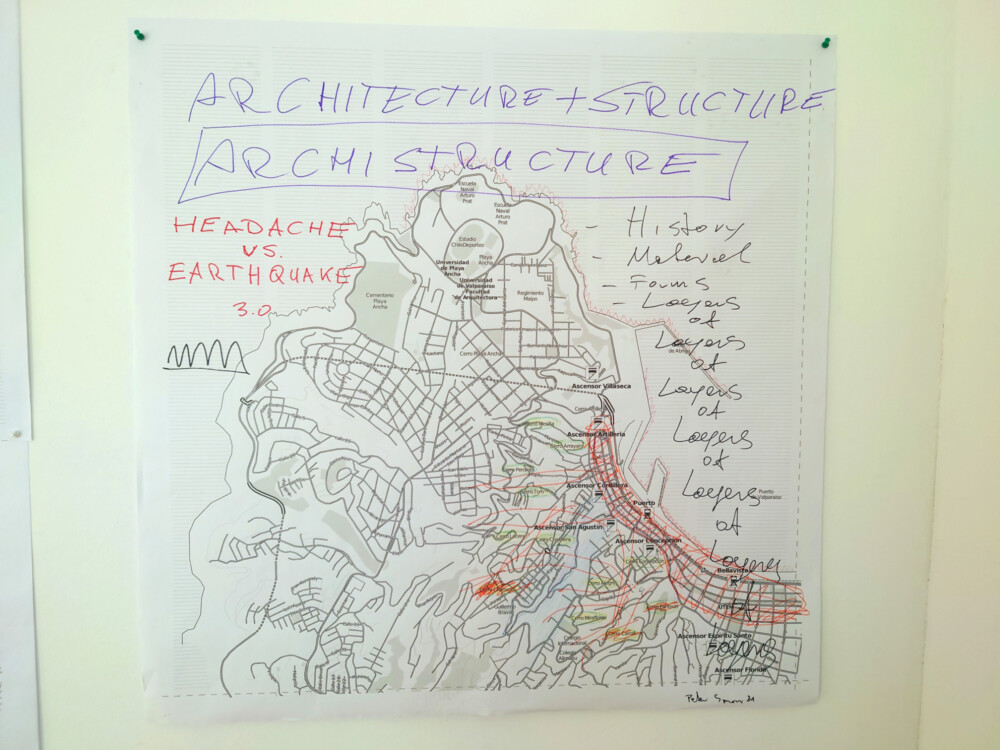 ARCHITECTURE + STRUCTURE
ARCHISTRUCTURE
HEADACHE
VS.
EARTHQUAKE
3.0
- History
- Material
- Forms
- Layers
of
Layers
of
Layers
of
Layers
of
Layers
of
Layers
of
Layers
Escuela
Naval
Arturo
Prat
Escuela
Naval
Arturo
Prat
Estadio
ChileDeportes
Playa
Ancha
Universidad
de Playa
Ancha
Universidad
de Valparaiso
Facultad
de Arquitectura
Regimiento
Maipo
Cementerio
Playa
Ancha
Cerro Playa Ancha
Ascensor Villaseca
Ascensor Artilleria
Ascensor Cordillera
Puerto
Puerto
Valparaiso
Ascensor San Agustin
Ascensor Concepción
Bellavista
Ascensor Espiritu Santo
Ascensor Florida
Colegio